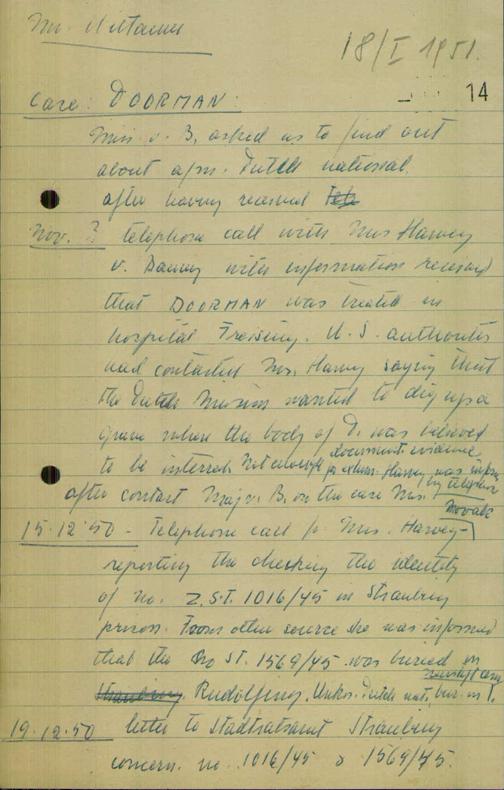 18/I 1951.
14
Case: DOORMAN:
Miss v. B. asked us to find out
about a/m. Dutch national.
after having received
Nov. ? telephone call with Mrs Harvey
v. with information received
that DOORMAN was treated in
hospital Freising. U.S. authorities
had contacted Mrs. Harvey saying that
the Dutch Mission wanted to dig up a
grave where the body of D. was believed
to be interred. Not enough document. evidence
for exhum. Harvey was inform
by telephone
after contact Maj v. B. on the case Mrs.
Novak
15.12.50 - Telephone call fr. Mrs. Harvey
reporting the checking the identity
of no. Z.S.T. 1016/45 in Straubing
prison. From other source she was informed
that the No ST. 1569/45 was buried in
Straubing. Unkn. Dutch nat. bur. in
19.12.50 letter to Stadtratsamt Straubing
concern. no. 1016/45 & 1569/45.